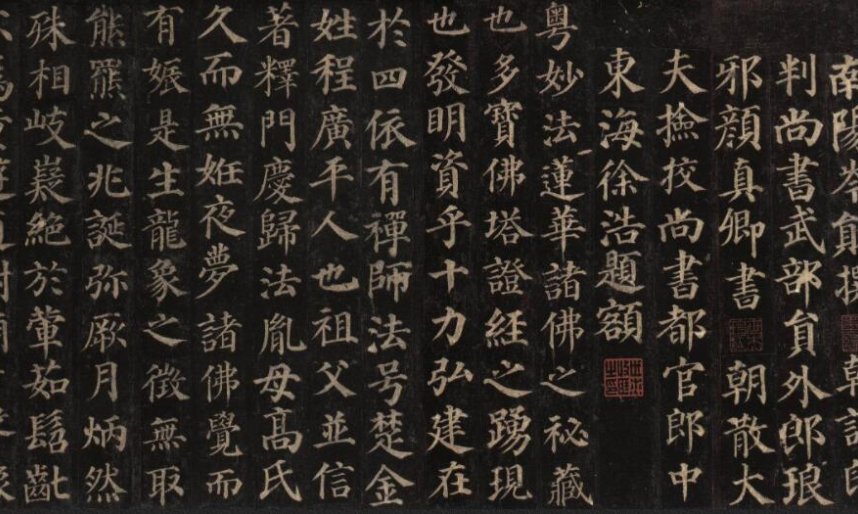 南陽岑勛撰 朝議郎
判尚書武部員外郎琅
邪顏真卿書 朝散大
夫撿挍尚書都官郎中
東海徐浩題額
粵妙法蓮華諸佛之秘藏
也多寶佛塔證經之踴現
也發明資乎十力弘建在
於四依有禪師法号楚金
姓程廣平人也祖父並信
著釋門慶歸法胤母高氏
久而無姙夜夢諸佛覺而
有娠是生龍象之徵無取
熊羆之兆誕弥厥月炳然
殊相岐嶷絕於葷茹髫齔